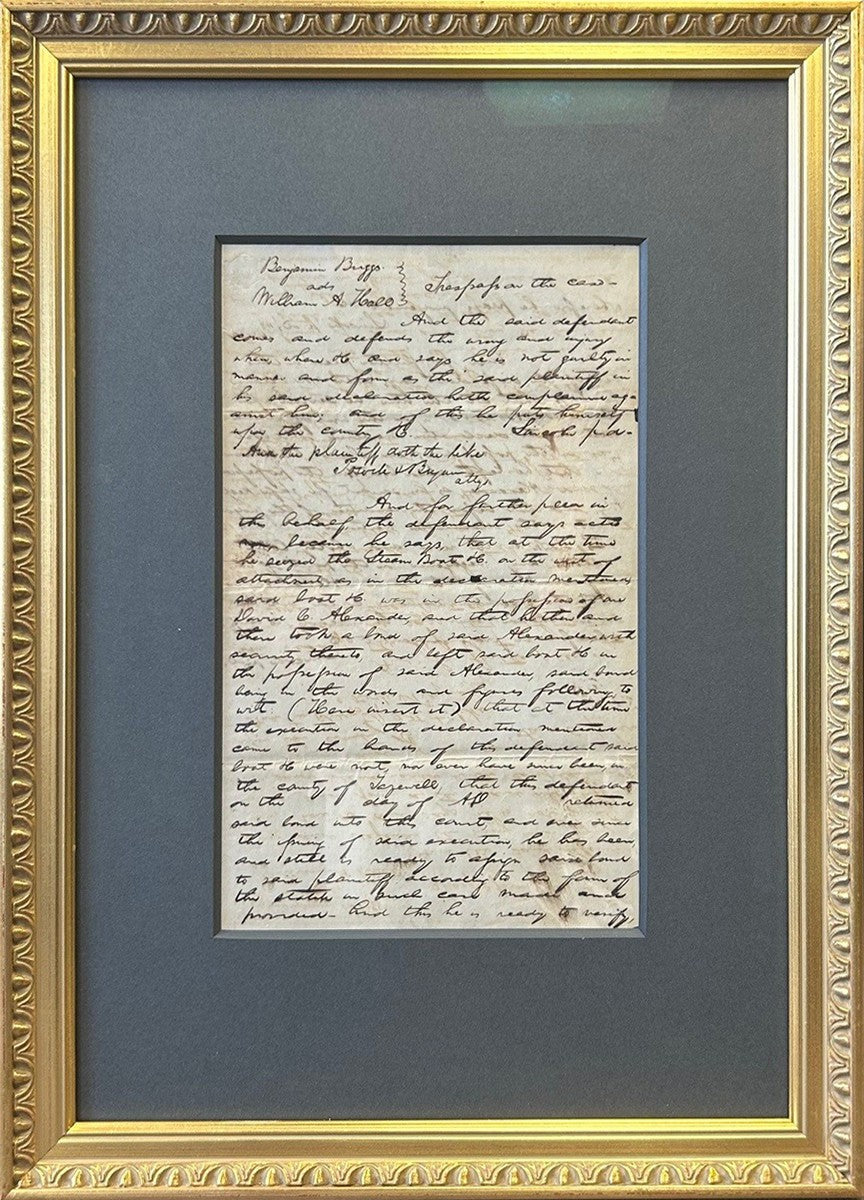 Benjamin Briggs
ads
William A. Hall
Trespass on the case—
And the said defendant
comes and defends the wrong and injury
when, where &c and says he is not guilty in
manner and form as the said plaintiff in
his said declaration hath complained aga
inst him; and of this he puts himself
upon the county &c. Lincoln p.d—
And the plaintiff doth the like
& Bryan
attys
And for further plea in
this behalf, the defendant says actio
non, because he says, that at the time
he seized the Steam Boat &c. on the writ of
attachment, as in the declaration mentioned
said boat &c was in the possession of one
David C Alexander, and that he then and
there took a bond of said Alexander, with
security thereto, and left said boat &c in
the possession of said Alexander, said bond
being in the words and figures following, to
wit: (Here insert it) that at the time
the execution in the declaration mentioned
came to the hands of this defendant said
boat &c were not, nor ever have since been in
the county of Tazewell, that this defendant
on the day of AD returned
said bond into this court, and ever since
the issuing of said execution, he has been,
and still is ready to assign said bond
to said plaintiff according to the form of
the statute in such case made and
provided— And this he is ready to verify,